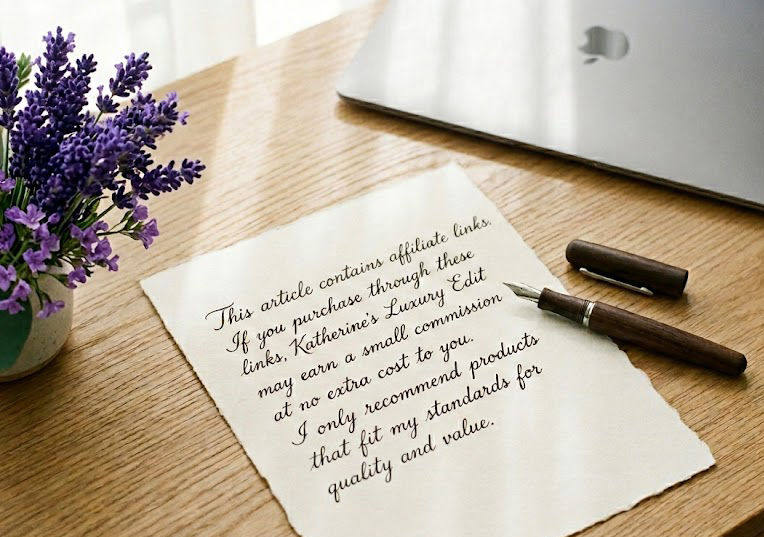 This article contains affiliate links.
If you purchase through these
links, Katherine's Luxury Edit
may earn a small commission
at no extra cost to you.
I only recommend products
that fit my standards for
quality and value.